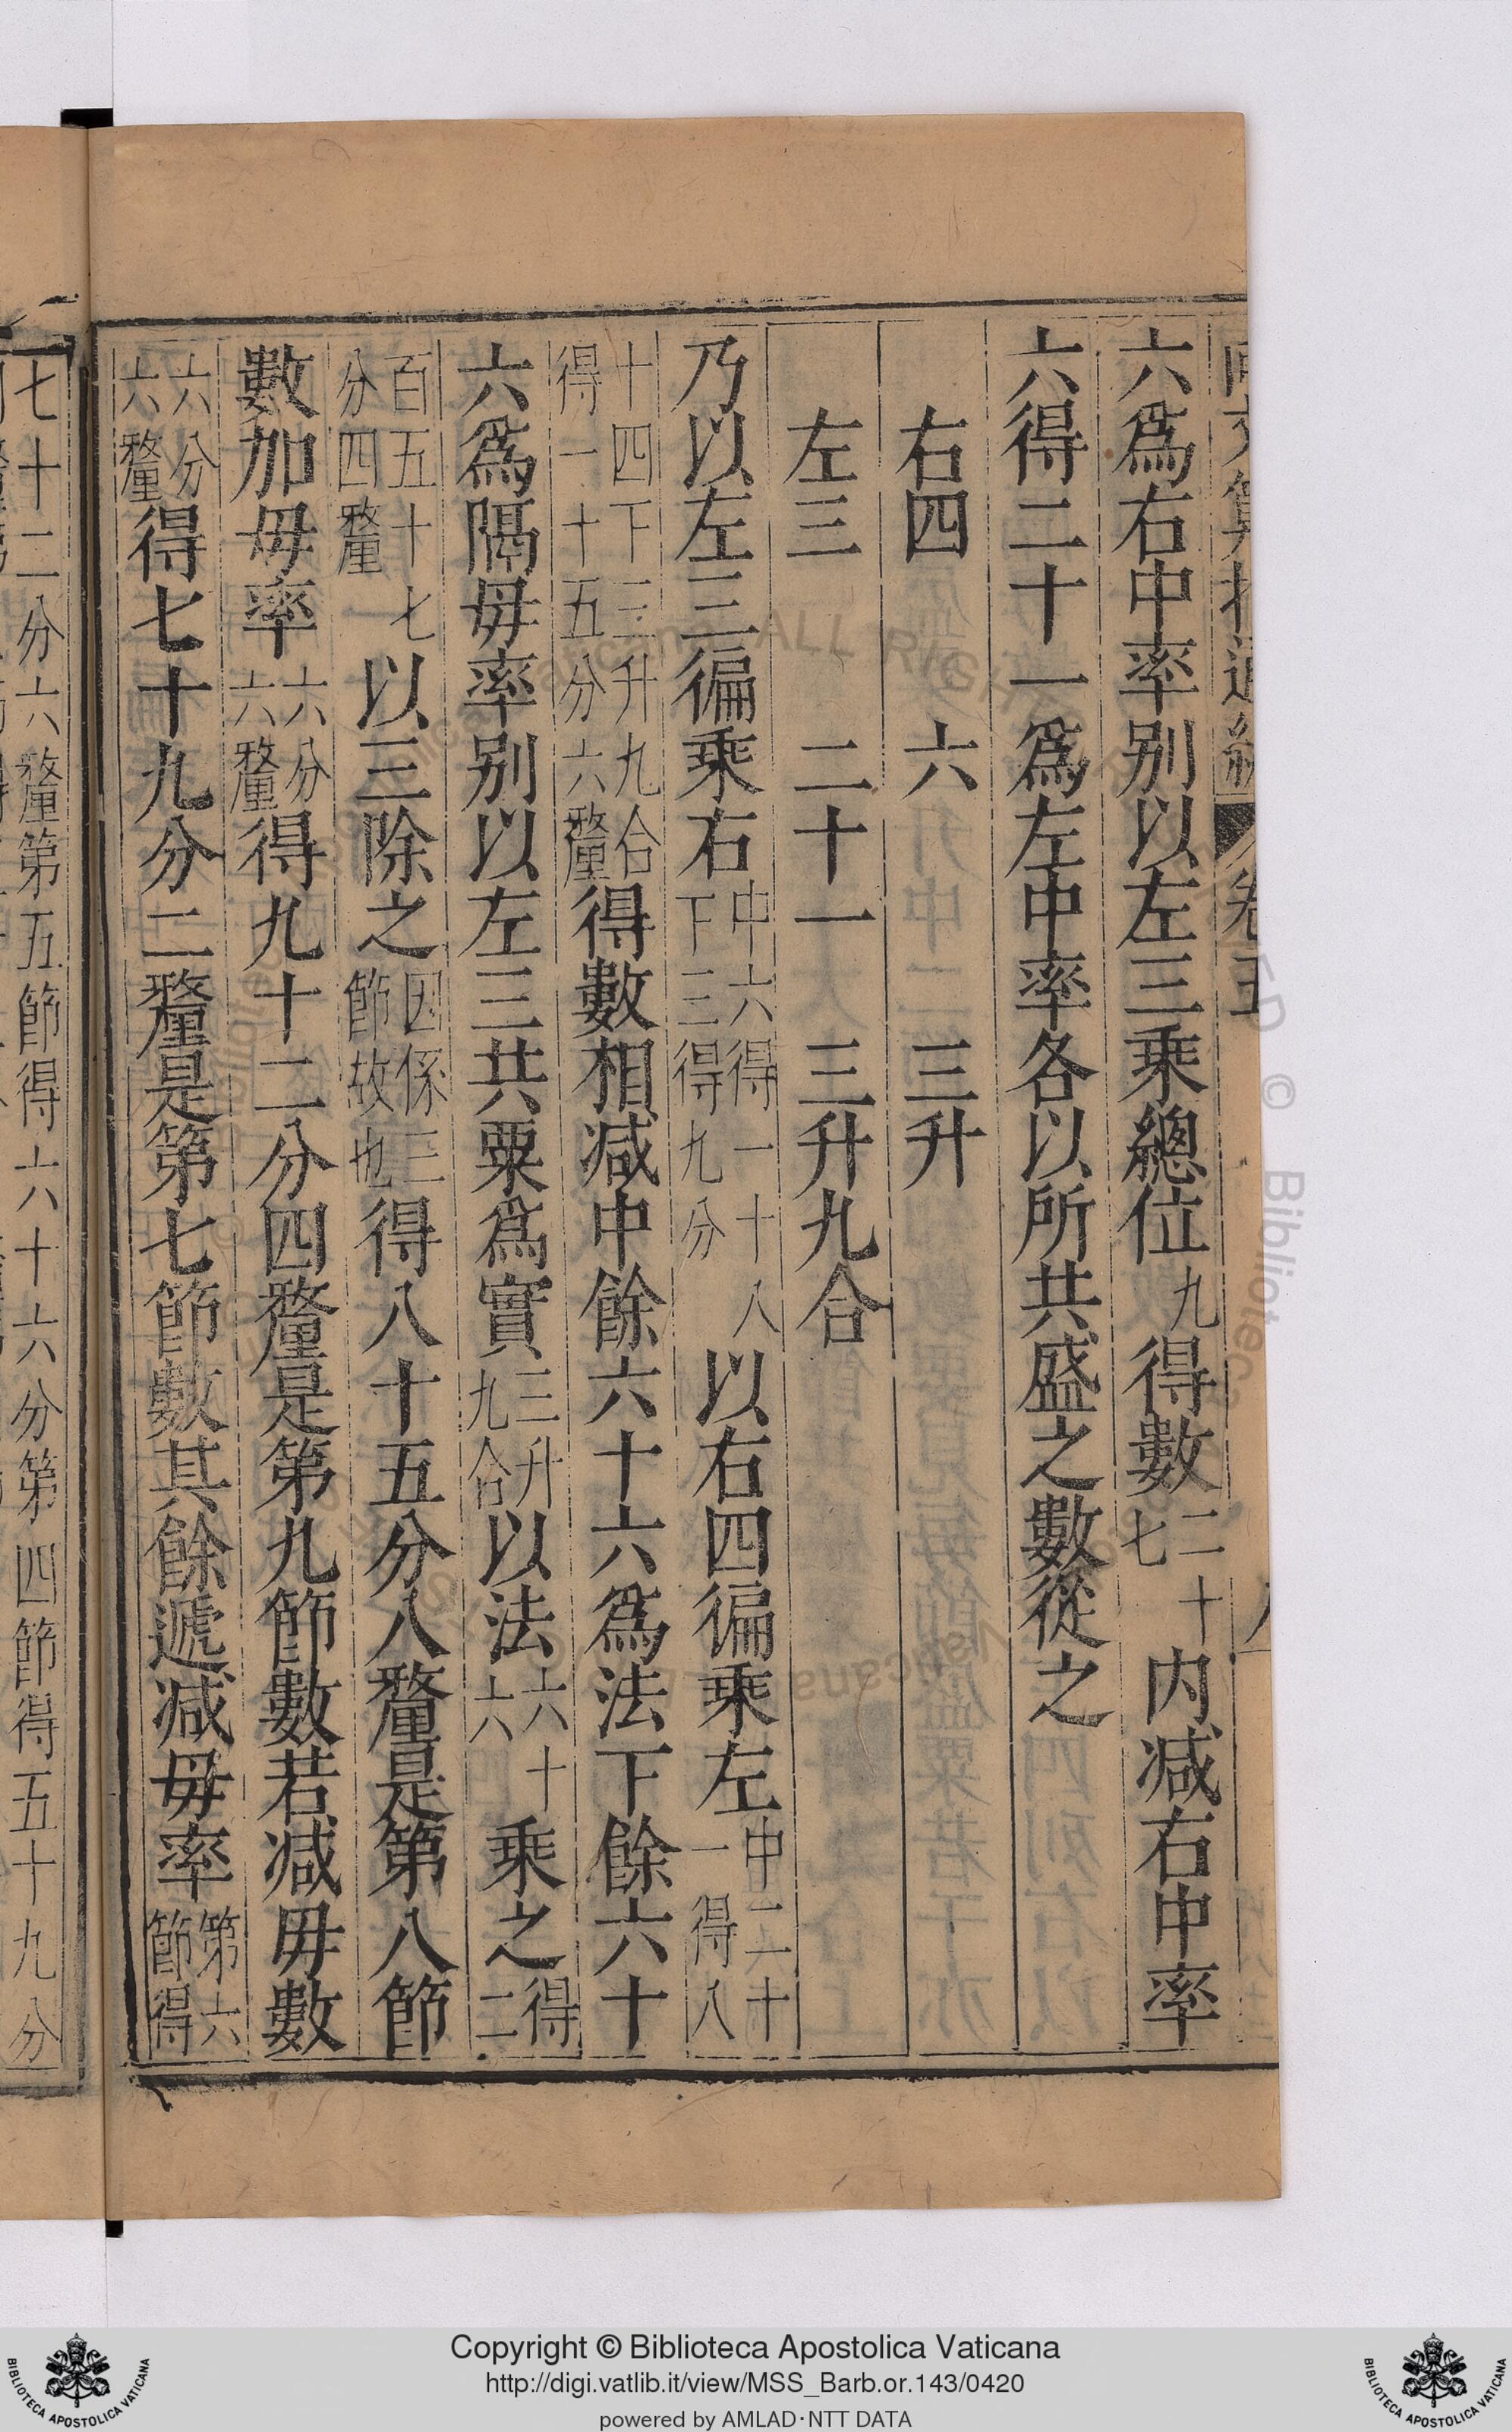 六爲右中率别以左三乘總位九得數二十七内减右中率
六得二十一爲左中率各以所共盛之數從之
右四 六 三升
左三 二十一 三升九合
乃以左三徧乘右中六得一十八下三得九分以右四徧乘左中二十一得八
十四下三升九合得一十五分六釐得數相减中餘六十六爲法下餘六十
六爲隔毋率别以左三共粟爲實三升九合以法六十六乘之得二
百五十七分四釐以三除之因係三節故也得八十五分八釐是第八節
數加毋率六分六釐得九十二分四釐是第九節數若减毋數
六分六釐得七十九分二釐是第七節數其餘遞减毋率第六節得
七十二分六釐第五節得六十六分第四節得五十九分
Copyright © Biblioteca Apostolica Vaticana
http://digi.vatlib.it/view/MSS_Barb.or.143/0420
powered by AMLAD·NTT DATA
BIBLIOTECA APOSTOLICA VATICANA
BIBLIOTECA APOSTOLICA VATICANA